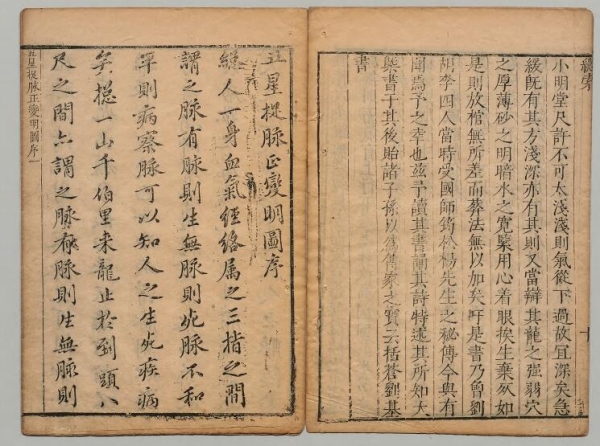 十
小明堂尺許不可太淺淺則氣從下過故宜深矣急
緩既有其方淺深亦有其則又當辯其龍之強弱穴
之厚薄砂之明暗水之寬窄用心着眼挨生棄死如
是則放棺無所差而葬法無以加矣吁是書乃曾劉
李四人當時受國師筠松楊先生之秘傳今與有
聞焉予之幸也茲予讀其書誦其詩特述其所知大
與書于其後貽諸子孫以為傳家之寶云括蒼劉基
書
五星捉脉正變明圖序
人一身血氣經絡属之三指之間
謂之脉有脉則生無脉則死脉不和
平則病察脉可以知人之生死疾病
矣搃一山千伯里来龍止於到頭八
尺之間亦謂之脉有脉則生無脉則
五星捉脉正變明圖序 一